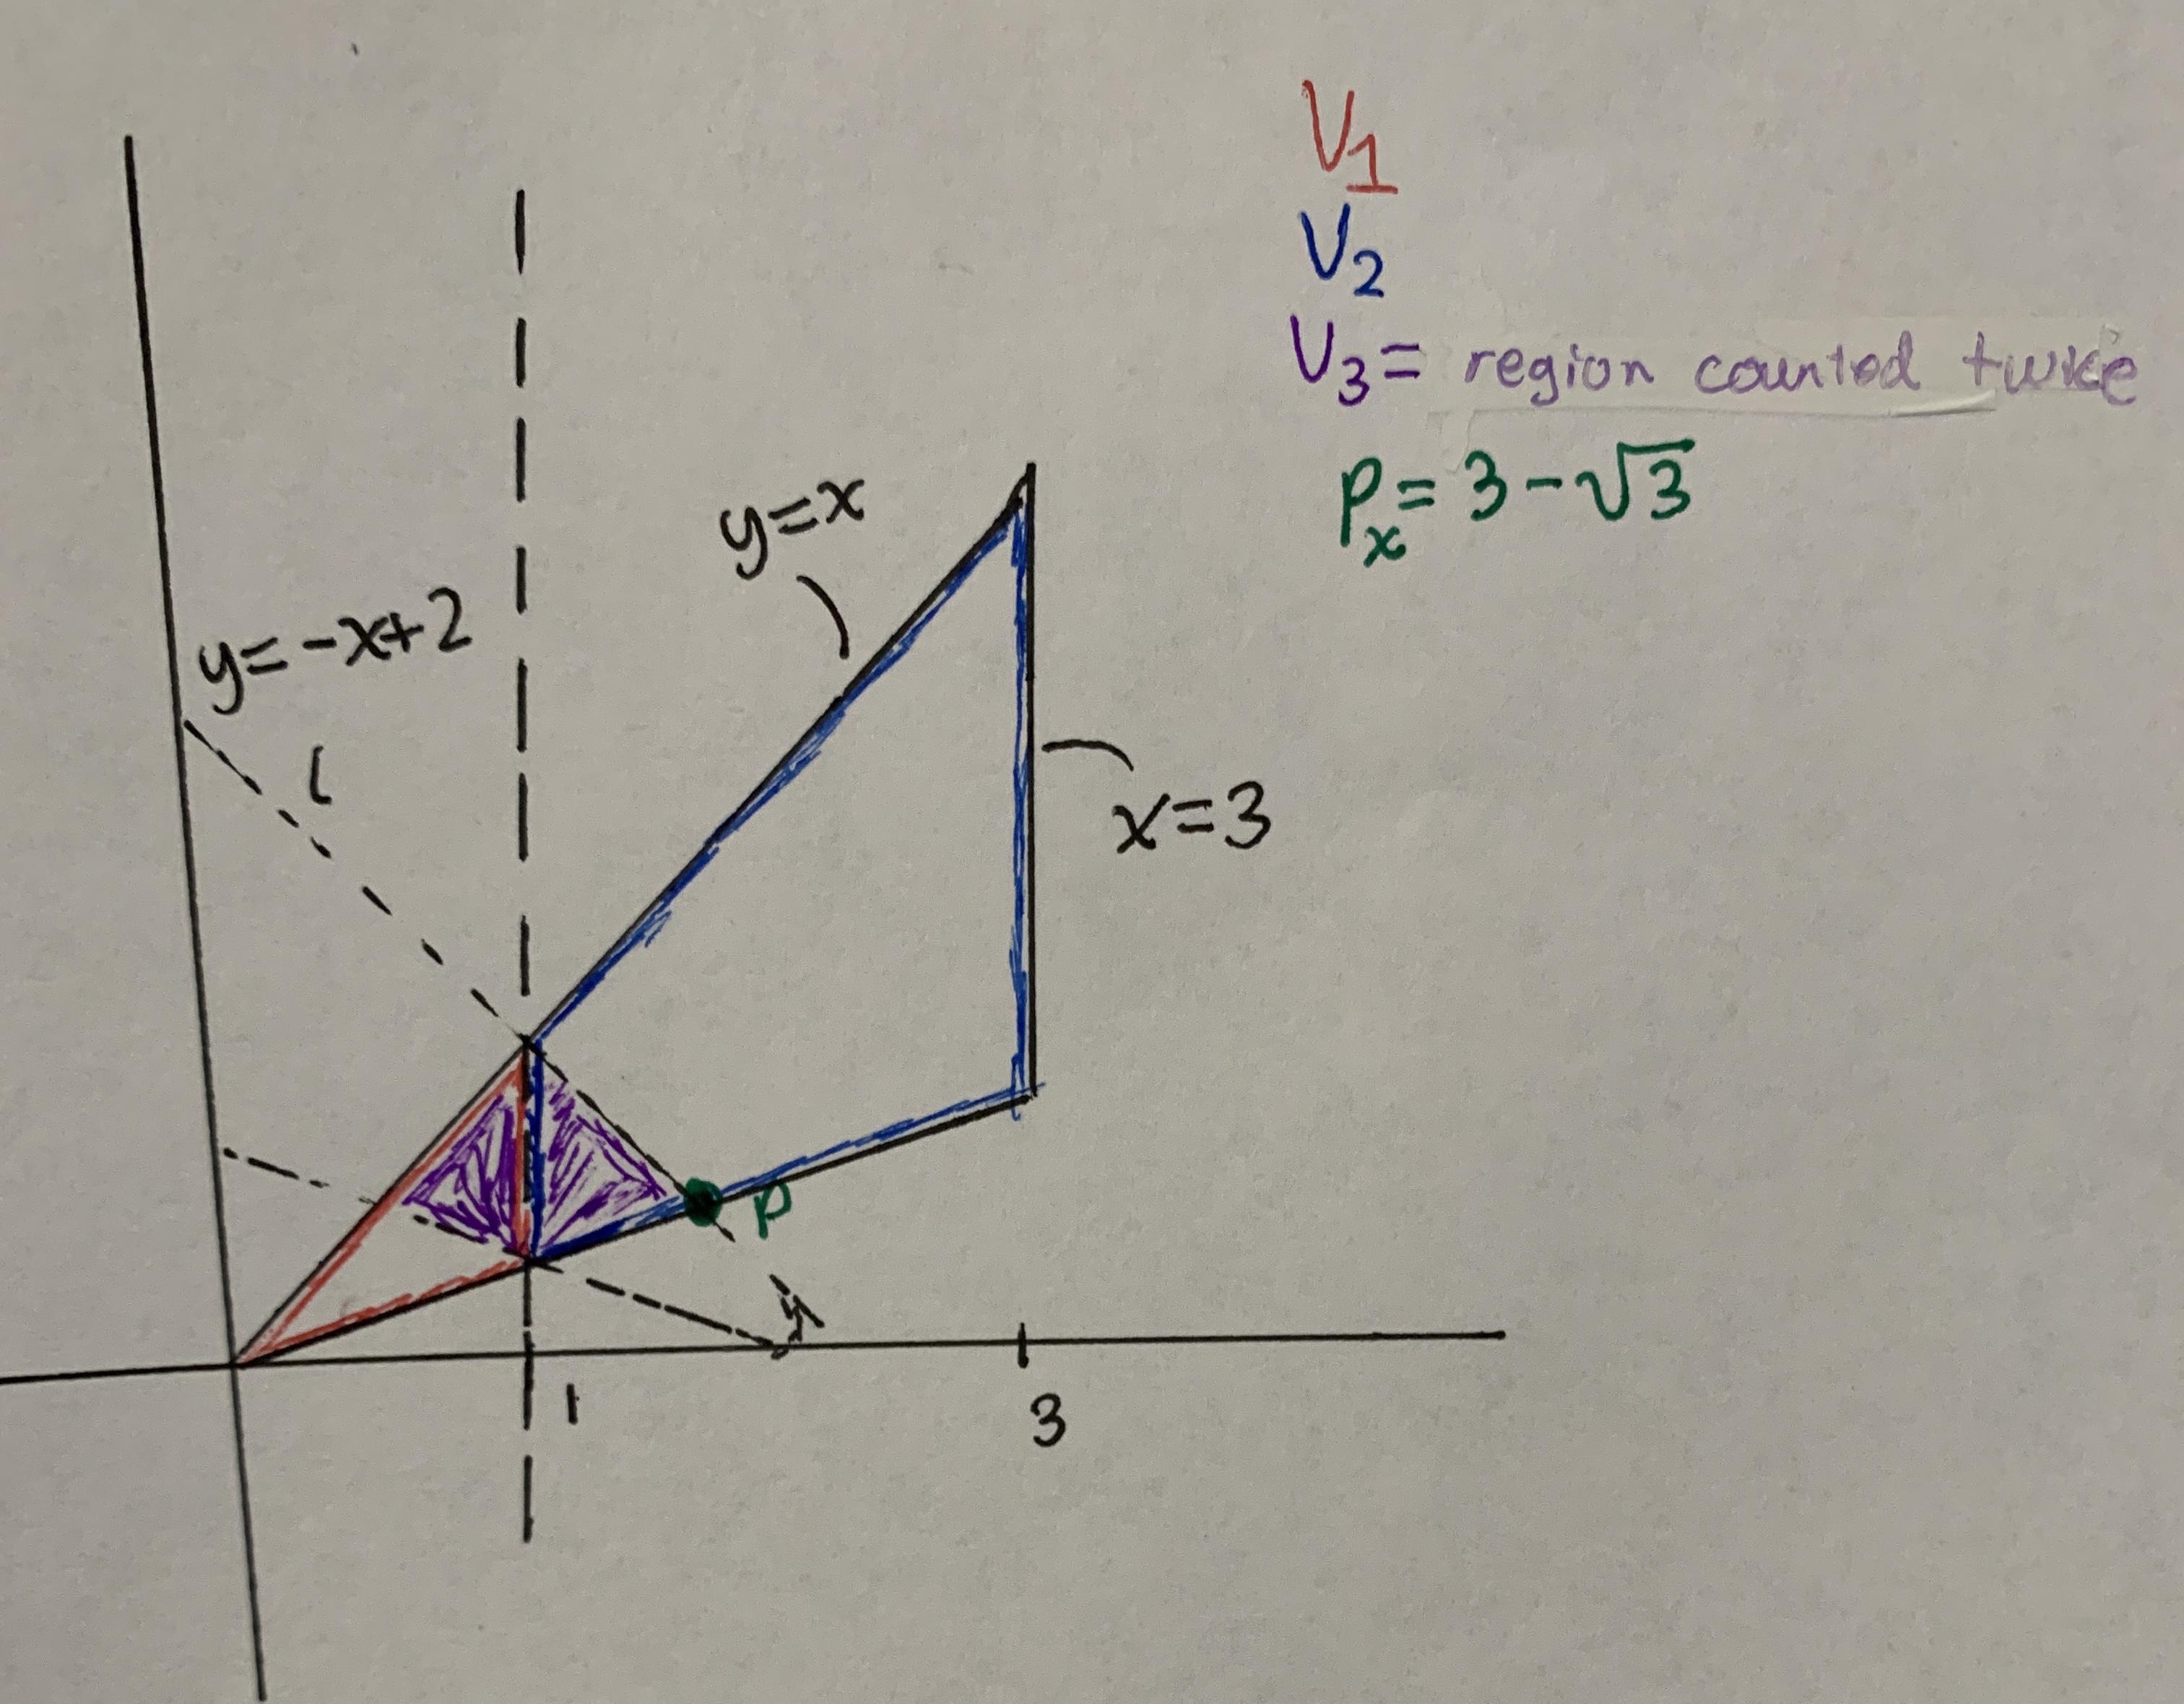 V₁
V₂
V₃= region counted twice
Pₓ= 3-√3
y=x
y=-x+2
x=3
P
1
3